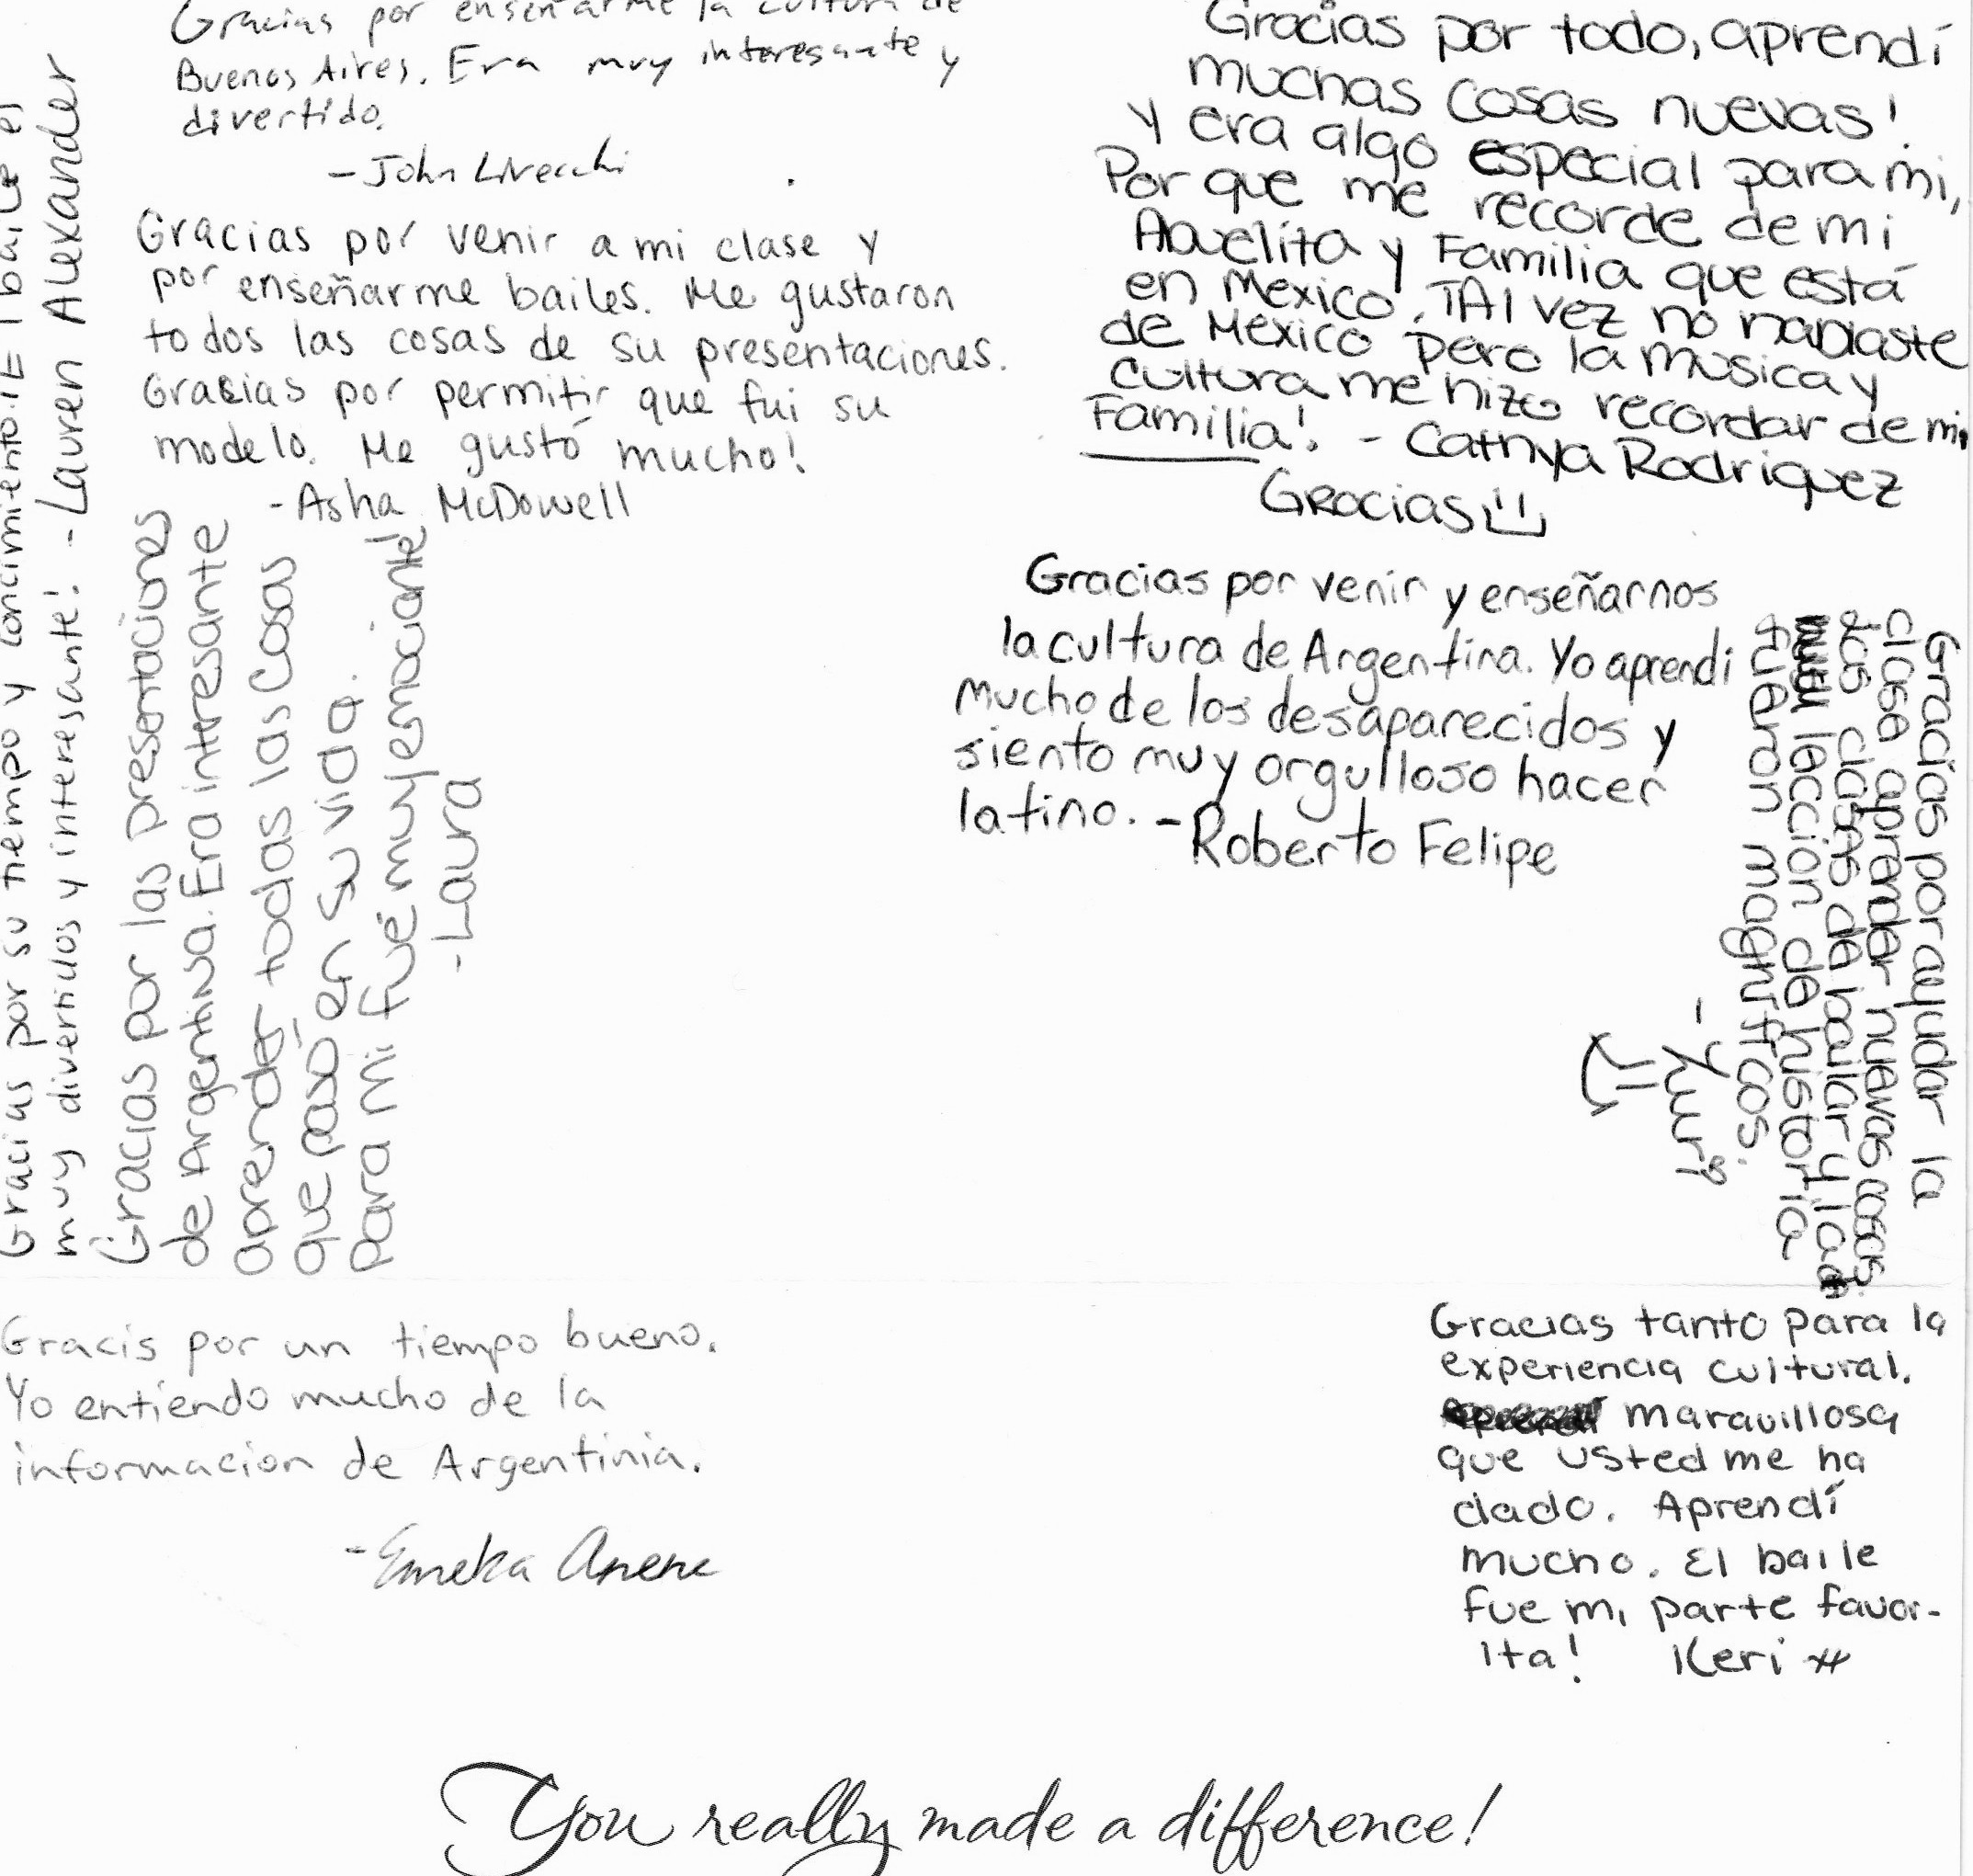 Gracias por enseñarme la cultura de
Buenos Aires. Era muy interesante y
divertido.
- John Livecchi
Gracias por venir a mi clase y
por enseñarme bailes. Me gustaron
todos las cosas de su presentaciones.
Gracias por permitir que fui su
modelo. Me gustó mucho!
- Asha McDowell
Gracias por su tiempo y concimiento. El baile el
muy divertidos y interesante! - Lauren Alexander
Gracias por las presentaciones
de Argentina. Era interesante
aprender todas las cosas
que pasó en su vida.
Para mi fué muy emocionante!
- Laura
Gracias por todo, aprendí
muchas cosas nuevas!
y era algo especial para mi,
Por que me recorde de mi
Abuelita y Familia que está
en Mexico. TAl vez no hablaste
de México pero la musica y
cultura me hizo recordar de mi
Familia! - Cathya Rodriquez
Gracias
Gracias por venir y enseñarnos
la cultura de Argentina. Yo aprendi
mucho de los desaparecidos y
siento muy orgulloso hacer
latino. - Roberto Felipe
Gracias por ayudar la
clase aprender nuevas cosas.
Las clases de bailar y la
lección de historia
fueron magníficos.
- Yumi
Gracis por un tiempo bueno.
Yo entiendo mucho de la
informacion de Argentinia.
- Emeka Anene
Gracias tanto para la
experiencia cultural.
maravillosa
que usted me ha
dado. Aprendí
mucho. El baile
fue mi parte favor-
ita! Keri
You really made a difference!